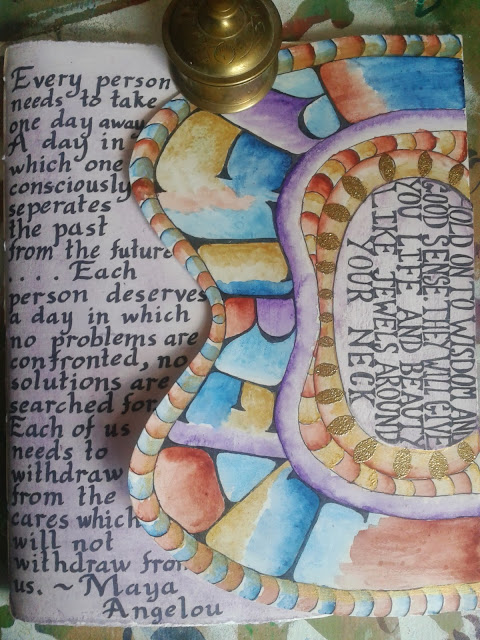 Every person
needs to take
one day away
A day in
which one
consciously
seperates
the past
from the future
. . . . Each
person deserves
a day in which
no problems are
confronted, no
solutions are
searched for.
Each of us
needs to
withdraw
from the
cares which
will not
withdraw from
us. ~ Maya
Angelou
OLD ON TO WASDOM AN
GOOD SENSE. THE WILL GIVE
YOU LIFE AND BEAUTY
LIKE JEWELS AROUND
YOUR NECK